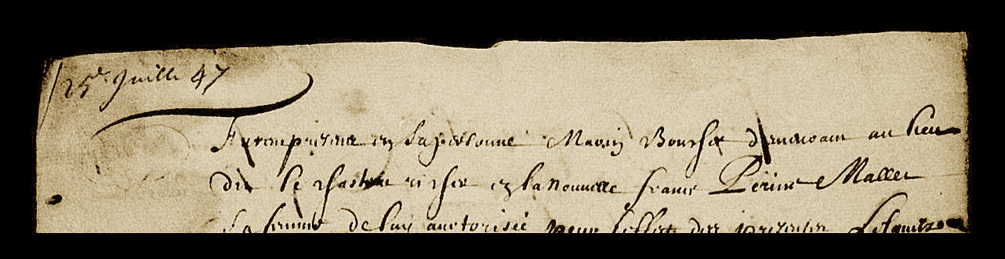 25e Juille 47
Fut present en sa personne Marin Boucher demeurant au lieu
dit le chasteau richer en la nouvelle france Perinne Mallet
sa femme de luy auctorisée pour l'effect des presentes Lesquels